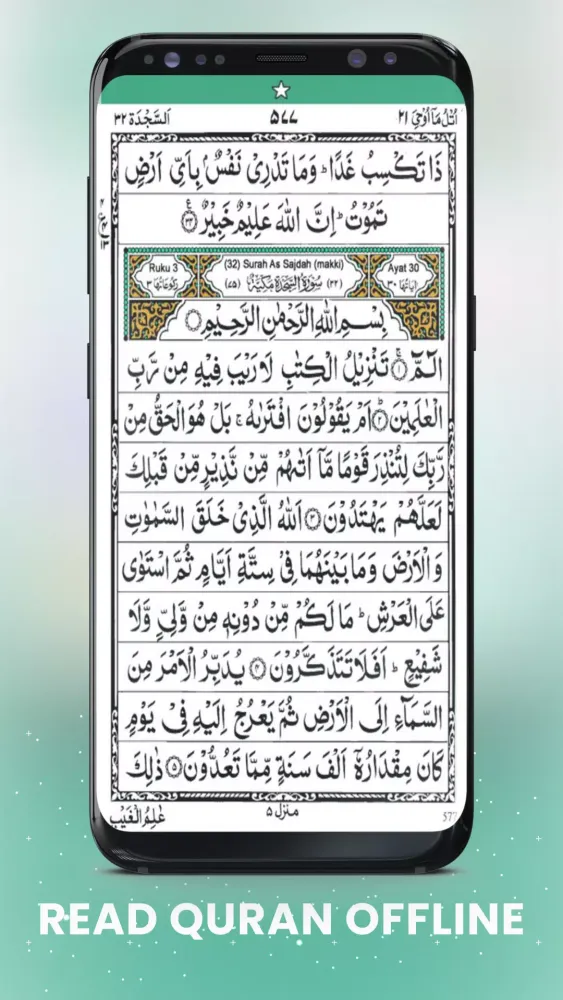 اَلسَّجْدَة ٣٢ ۵۷۷ اُتْلُ مَآ اُوْحِیَ ٢١
ذَا تَكْسِبُ غَدًا ؕ وَمَا تَدْرِیْ نَفْسٌۢ بِاَیِّ اَرْضٍ
تَمُوْتُ ؕ اِنَّ اللّٰهَ عَلِیْمٌ خَبِیْرٌ
Ruku 3 (32) Surah As Sajdah (makki) Ayat 30
رُكُوْعَاتُهَا ٣ (۷۵) سُوْرَةُ السَّجْدَةِ مَكِّیَّةٌ (٣٢) اٰیَاتُهَا ٣٠
بِسْمِ اللّٰهِ الرَّحْمٰنِ الرَّحِیْمِ
الٓمّٓ ۝١ تَنْزِیْلُ الْكِتٰبِ لَا رَیْبَ فِیْهِ مِنْ رَّبِّ
الْعٰلَمِیْنَ ۝٢ اَمْ یَقُوْلُوْنَ افْتَرٰىهُ ۚ بَلْ هُوَ الْحَقُّ مِنْ
رَّبِّكَ لِتُنْذِرَ قَوْمًا مَّاۤ اَتٰىهُمْ مِّنْ نَّذِیْرٍ مِّنْ قَبْلِكَ
لَعَلَّهُمْ یَهْتَدُوْنَ ۝٣ اَللّٰهُ الَّذِیْ خَلَقَ السَّمٰوٰتِ
وَالْاَرْضَ وَمَا بَیْنَهُمَا فِیْ سِتَّةِ اَیَّامٍ ثُمَّ اسْتَوٰی
عَلَی الْعَرْشِ ؕ مَا لَكُمْ مِّنْ دُوْنِهٖ مِنْ وَّلِیٍّ وَّلَا
شَفِیْعٍ ؕ اَفَلَا تَتَذَكَّرُوْنَ ۝٤ یُدَبِّرُ الْاَمْرَ مِنَ
السَّمَآءِ اِلَی الْاَرْضِ ثُمَّ یَعْرُجُ اِلَیْهِ فِیْ یَوْمٍ
كَانَ مِقْدَارُهٗۤ اَلْفَ سَنَةٍ مِّمَّا تَعُدُّوْنَ ۝٥ ذٰلِكَ
عٰلِمُ الْغَیْبِ منزل ۵ 577
READ QURAN OFFLINE